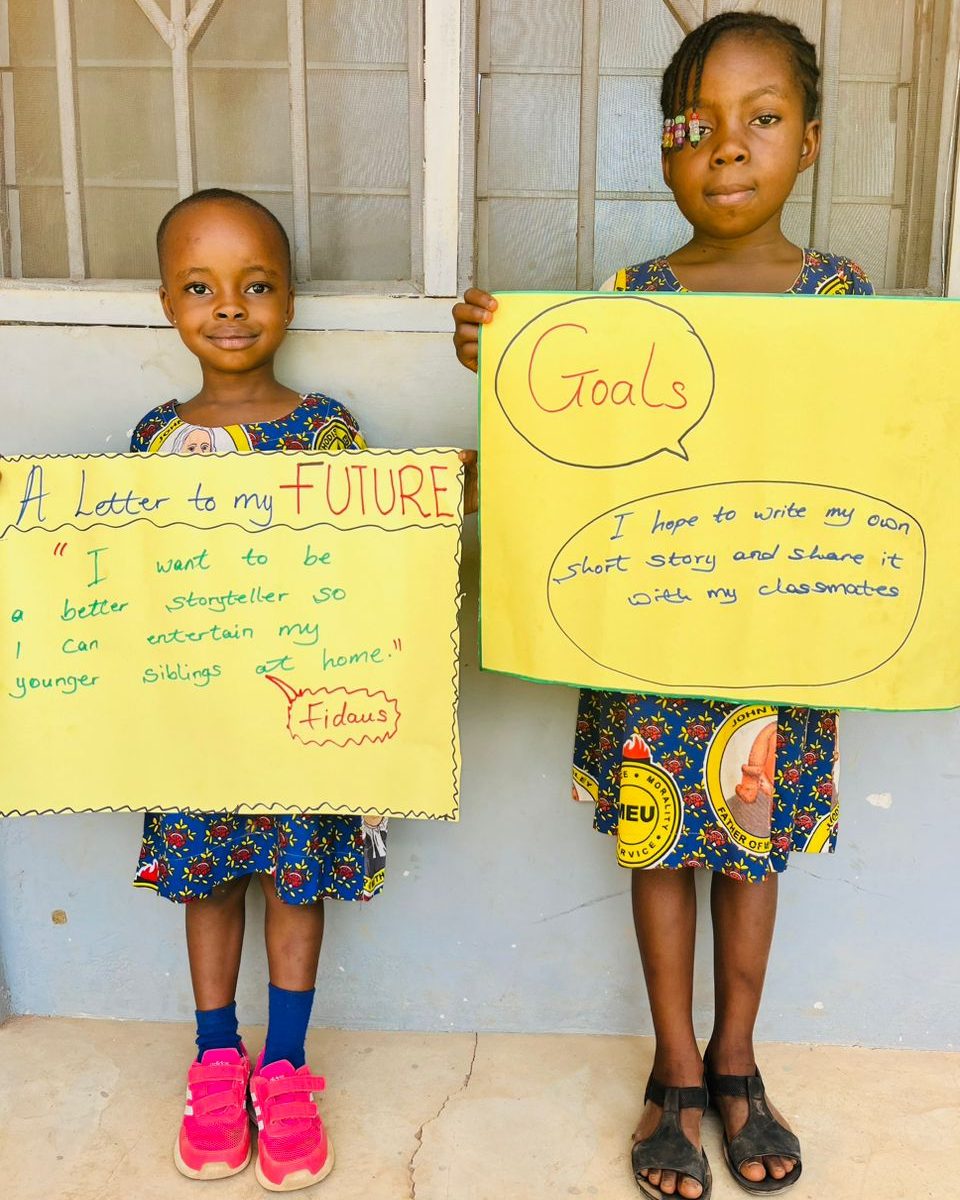 A Letter to my FUTURE
" I want to be
a better storyteller so
I can entertain my
younger siblings at home."
Fidaus
Goals
I hope to write my own
short story and share it
with my classmates
JOHN W
MEU
MORALITY
SERVICE
FATHER OF
adidas